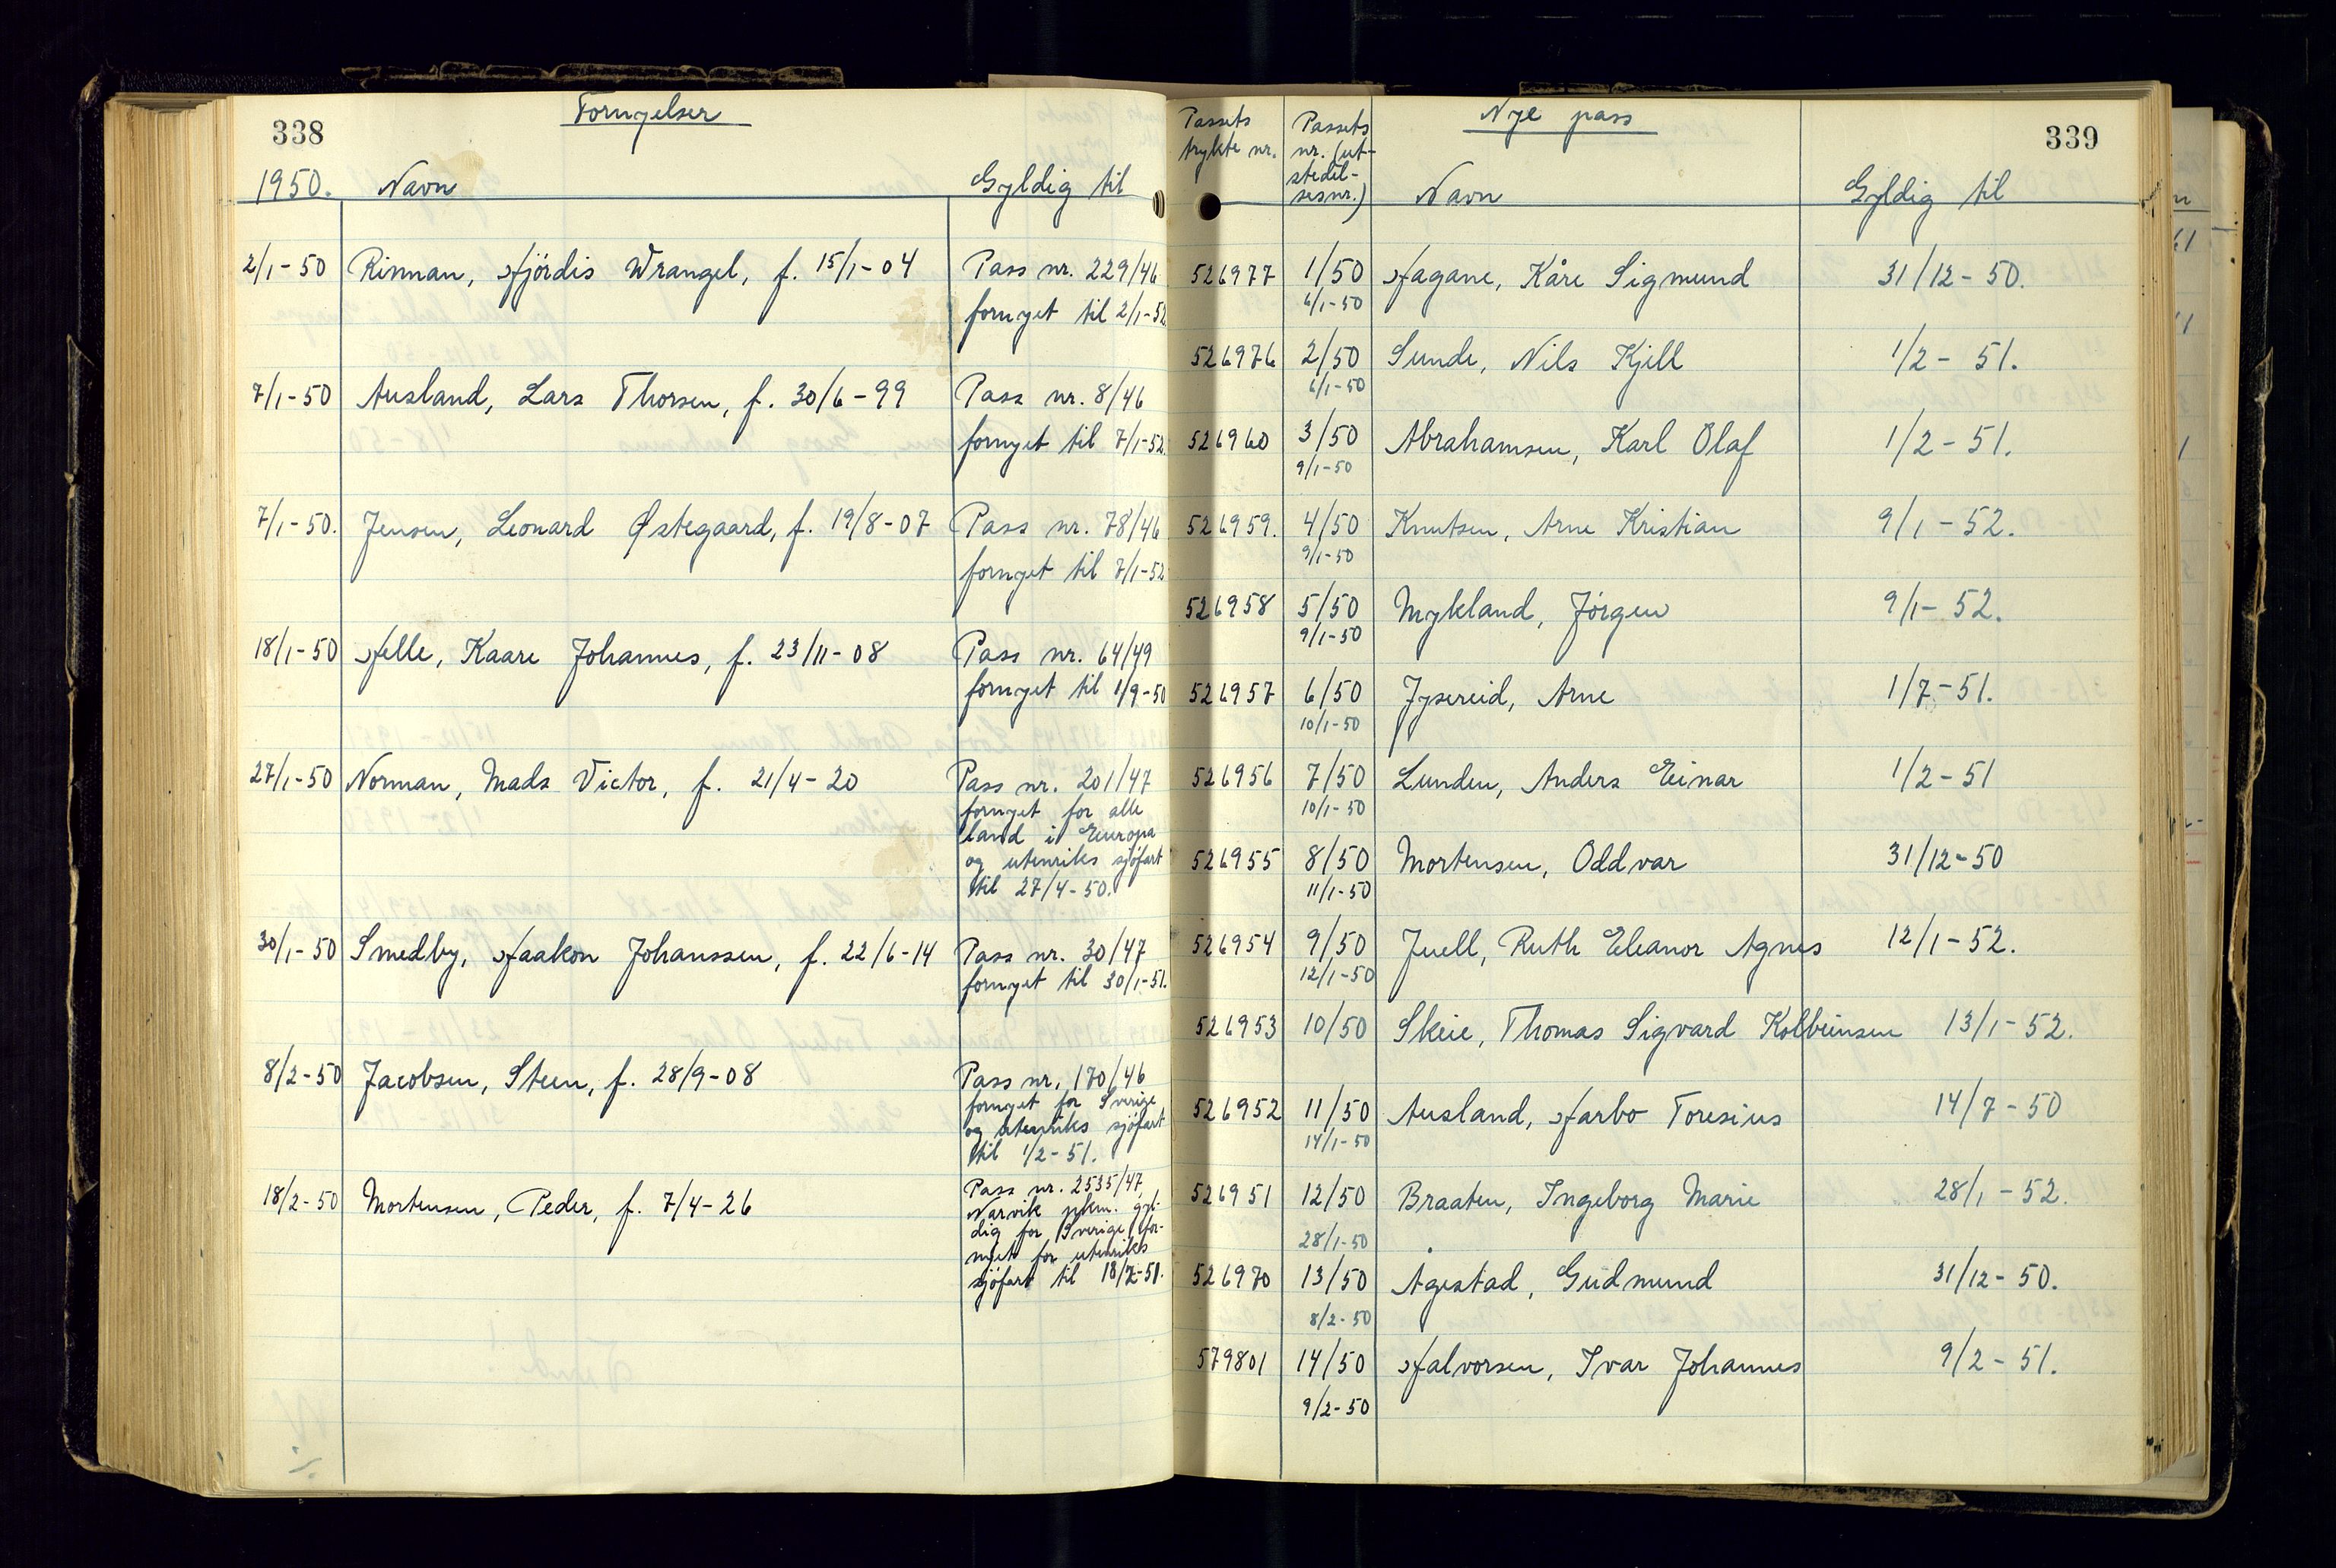 338
Fornyelser
1950. Navn Gyldig til
2/1-50 Rinnan, Hjördis Wrangel, f. 15/1-04 Pass nr. 229/46
fornyet til 2/1-52
7/1-50 Ausland, Lars Thorsen, f. 30/6-99 Pass nr. 8/46
fornyet til 7/1-52.
7/1-50. Jensen, Leonard Østegaard, f. 19/8-07 Pass nr. 78/46
fornyet til 7/1-52
18/1-50 Helle, Kaare Johannes, f. 23/11-08 Pass nr. 64/49
fornyet til 1/9-50
27/1-50 Norman, Mads Victor, f. 21/4-20 Pass nr. 201/47
fornyet for alle
land i Europa
og utenriks sjöfart
til 27/4-50.
30/1-50 Smedby, Haakon Johanssen, f. 22/6-14 Pass nr. 30/47
fornyet til 30/1-51.
8/2-50 Jacobsen, Steen, f. 28/9-08 Pass nr. 170/46
fornyet for Sverige
og utenriks sjöfart
til 1/2-51.
18/2-50 Mortensen, Peder, f. 7/4-26 Pass nr. 2535/47,
Narvik pkm. gyl-
dig for Sverige, for-
nyet for utenriks
sjöfart til 18/2-51.
339
Passets
trykte nr.
Passets
nr. (ut-
stedel-
sesnr.)
Nye pass
Navn Gyldig til
526977 1/50 Hagane, Kåre Sigmund 31/12-50.
6/1-50
526976 2/50 Sunde, Nils Kjell 1/2-51.
6/1-50
526960 3/50 Abrahamsen, Karl Olaf 1/2-51.
9/1-50
526959. 4/50 Knutsen, Arne Kristian 9/1-52.
9/1-50
526958 5/50 Mykland, Jörgen 9/1-52.
9/1-50
526957 6/50 Jysereid, Arne 1/7-51.
10/1-50
526956 7/50 Lunden, Anders Einar 1/2-51
10/1-50
526955 8/50 Mortensen, Oddvar 31/12-50
11/1-50
526954 9/50 Juell, Ruth Eleanor Agnes 12/1-52.
12/1-50
526953 10/50 Skeie, Thomas Sigvard Kolbeinsen 13/1-52.
526952 11/50 Ausland, Harbo Toresius 14/7-50
14/1-50
526951 12/50 Braaten, Ingeborg Marie 28/1-52.
28/1-50
526970 13/50 Ågestad, Gudmund 31/12-50.
8/2-50
579801 14/50 Halvorsen, Ivar Johannes 9/2-51.
9/2-50